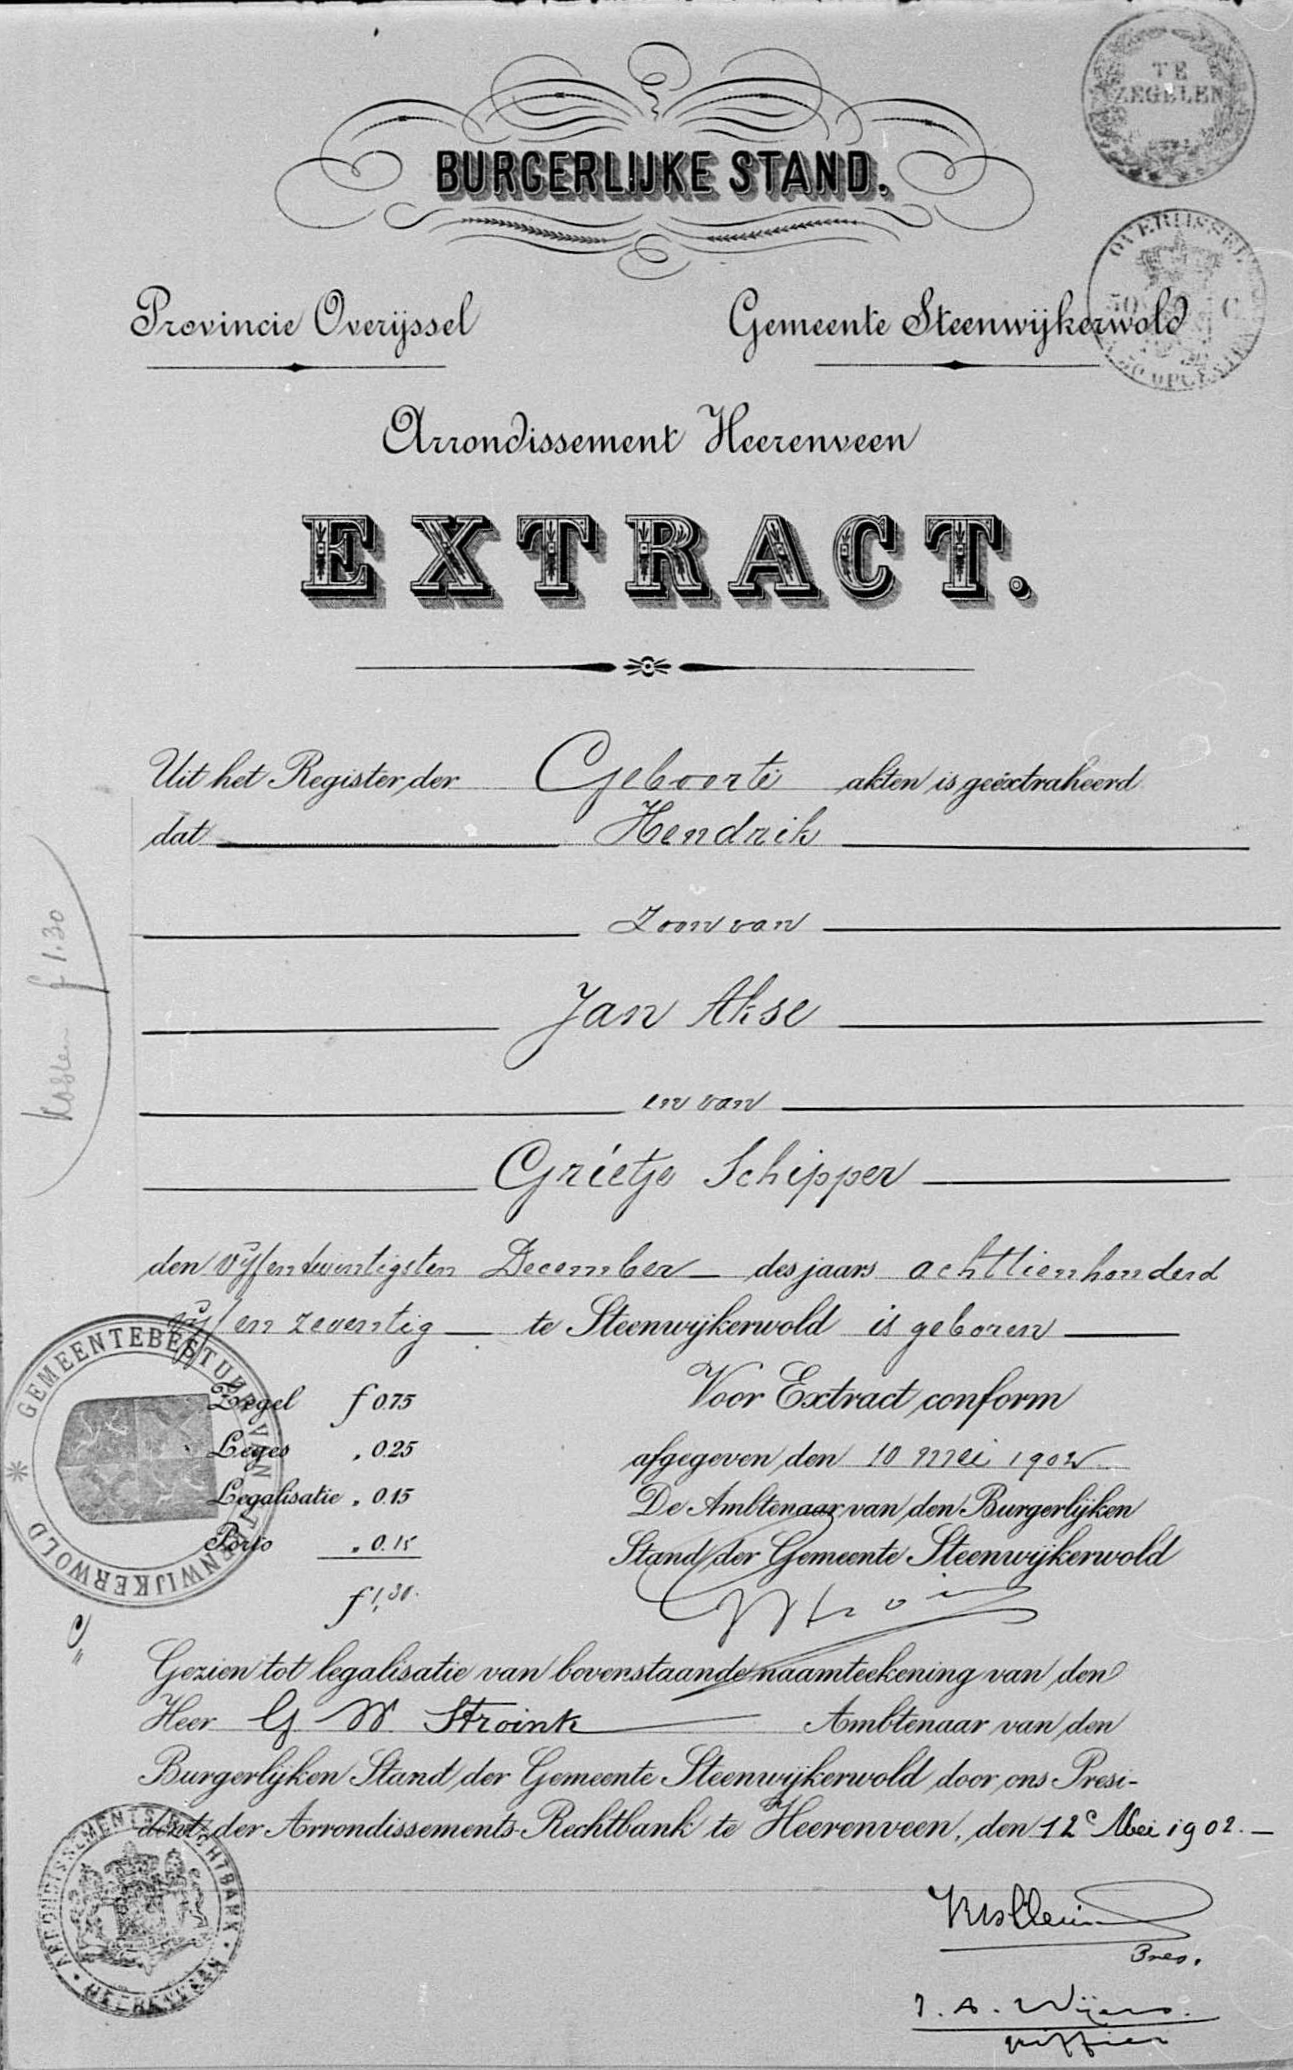 TE
ZEGELEN
BURGERLIJKE STAND.
OVERIJSSEL
50 C
50 OPCENTEN
Provincie Overijssel
Gemeente Steenwijkerwold
Arrondissement Heerenveen
EXTRACT.
Uit het Register der Geboorte akten is geëxtraheerd
dat Hendrik
Zoon van
Jan Akse
en van
Grietje Schipper
den vijfentwintigsten December des jaars achttienhonderd
vijf en zeventig te Steenwijkerwold is geboren
Kosten f 1.30
GEMEENTEBESTUUR VAN STEENWIJKERWOLD
Zegel f 0.75
Leges „ 0.25
Legalisatie „ 0.15
Porto „ 0.15
f 1,30.
Voor Extract conform
afgegeven den 10 mei 1902
De Ambtenaar van den Burgerlijken
Stand der Gemeente Steenwijkerwold
GWStroink
Gezien tot legalisatie van bovenstaande naamteekening van den
Heer G W. Stroink Ambtenaar van den
Burgerlijken Stand der Gemeente Steenwijkerwold door ons Presi-
dent der Arrondissements-Rechtbank te Heerenveen, den 12e Mei 1902.
ARRONDISSEMENTS RECHTBANK
HEERENVEEN
Pres.
J. A. Wijers.
griffier